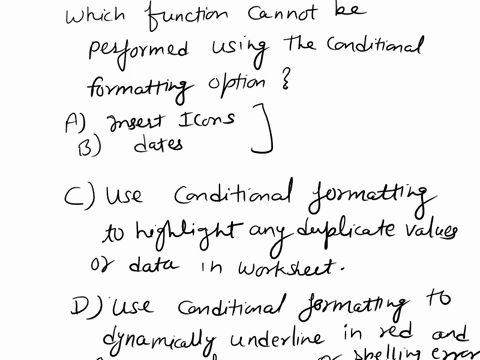 which function cannot be
performed using the conditional
formatting option ?
A) Insert Icons
B) dates
C) Use Conditional formatting
to highlight any duplicate values
or data in worksheet.
D) Use Conditional formatting to
dynamically underline in red and
or spelling error